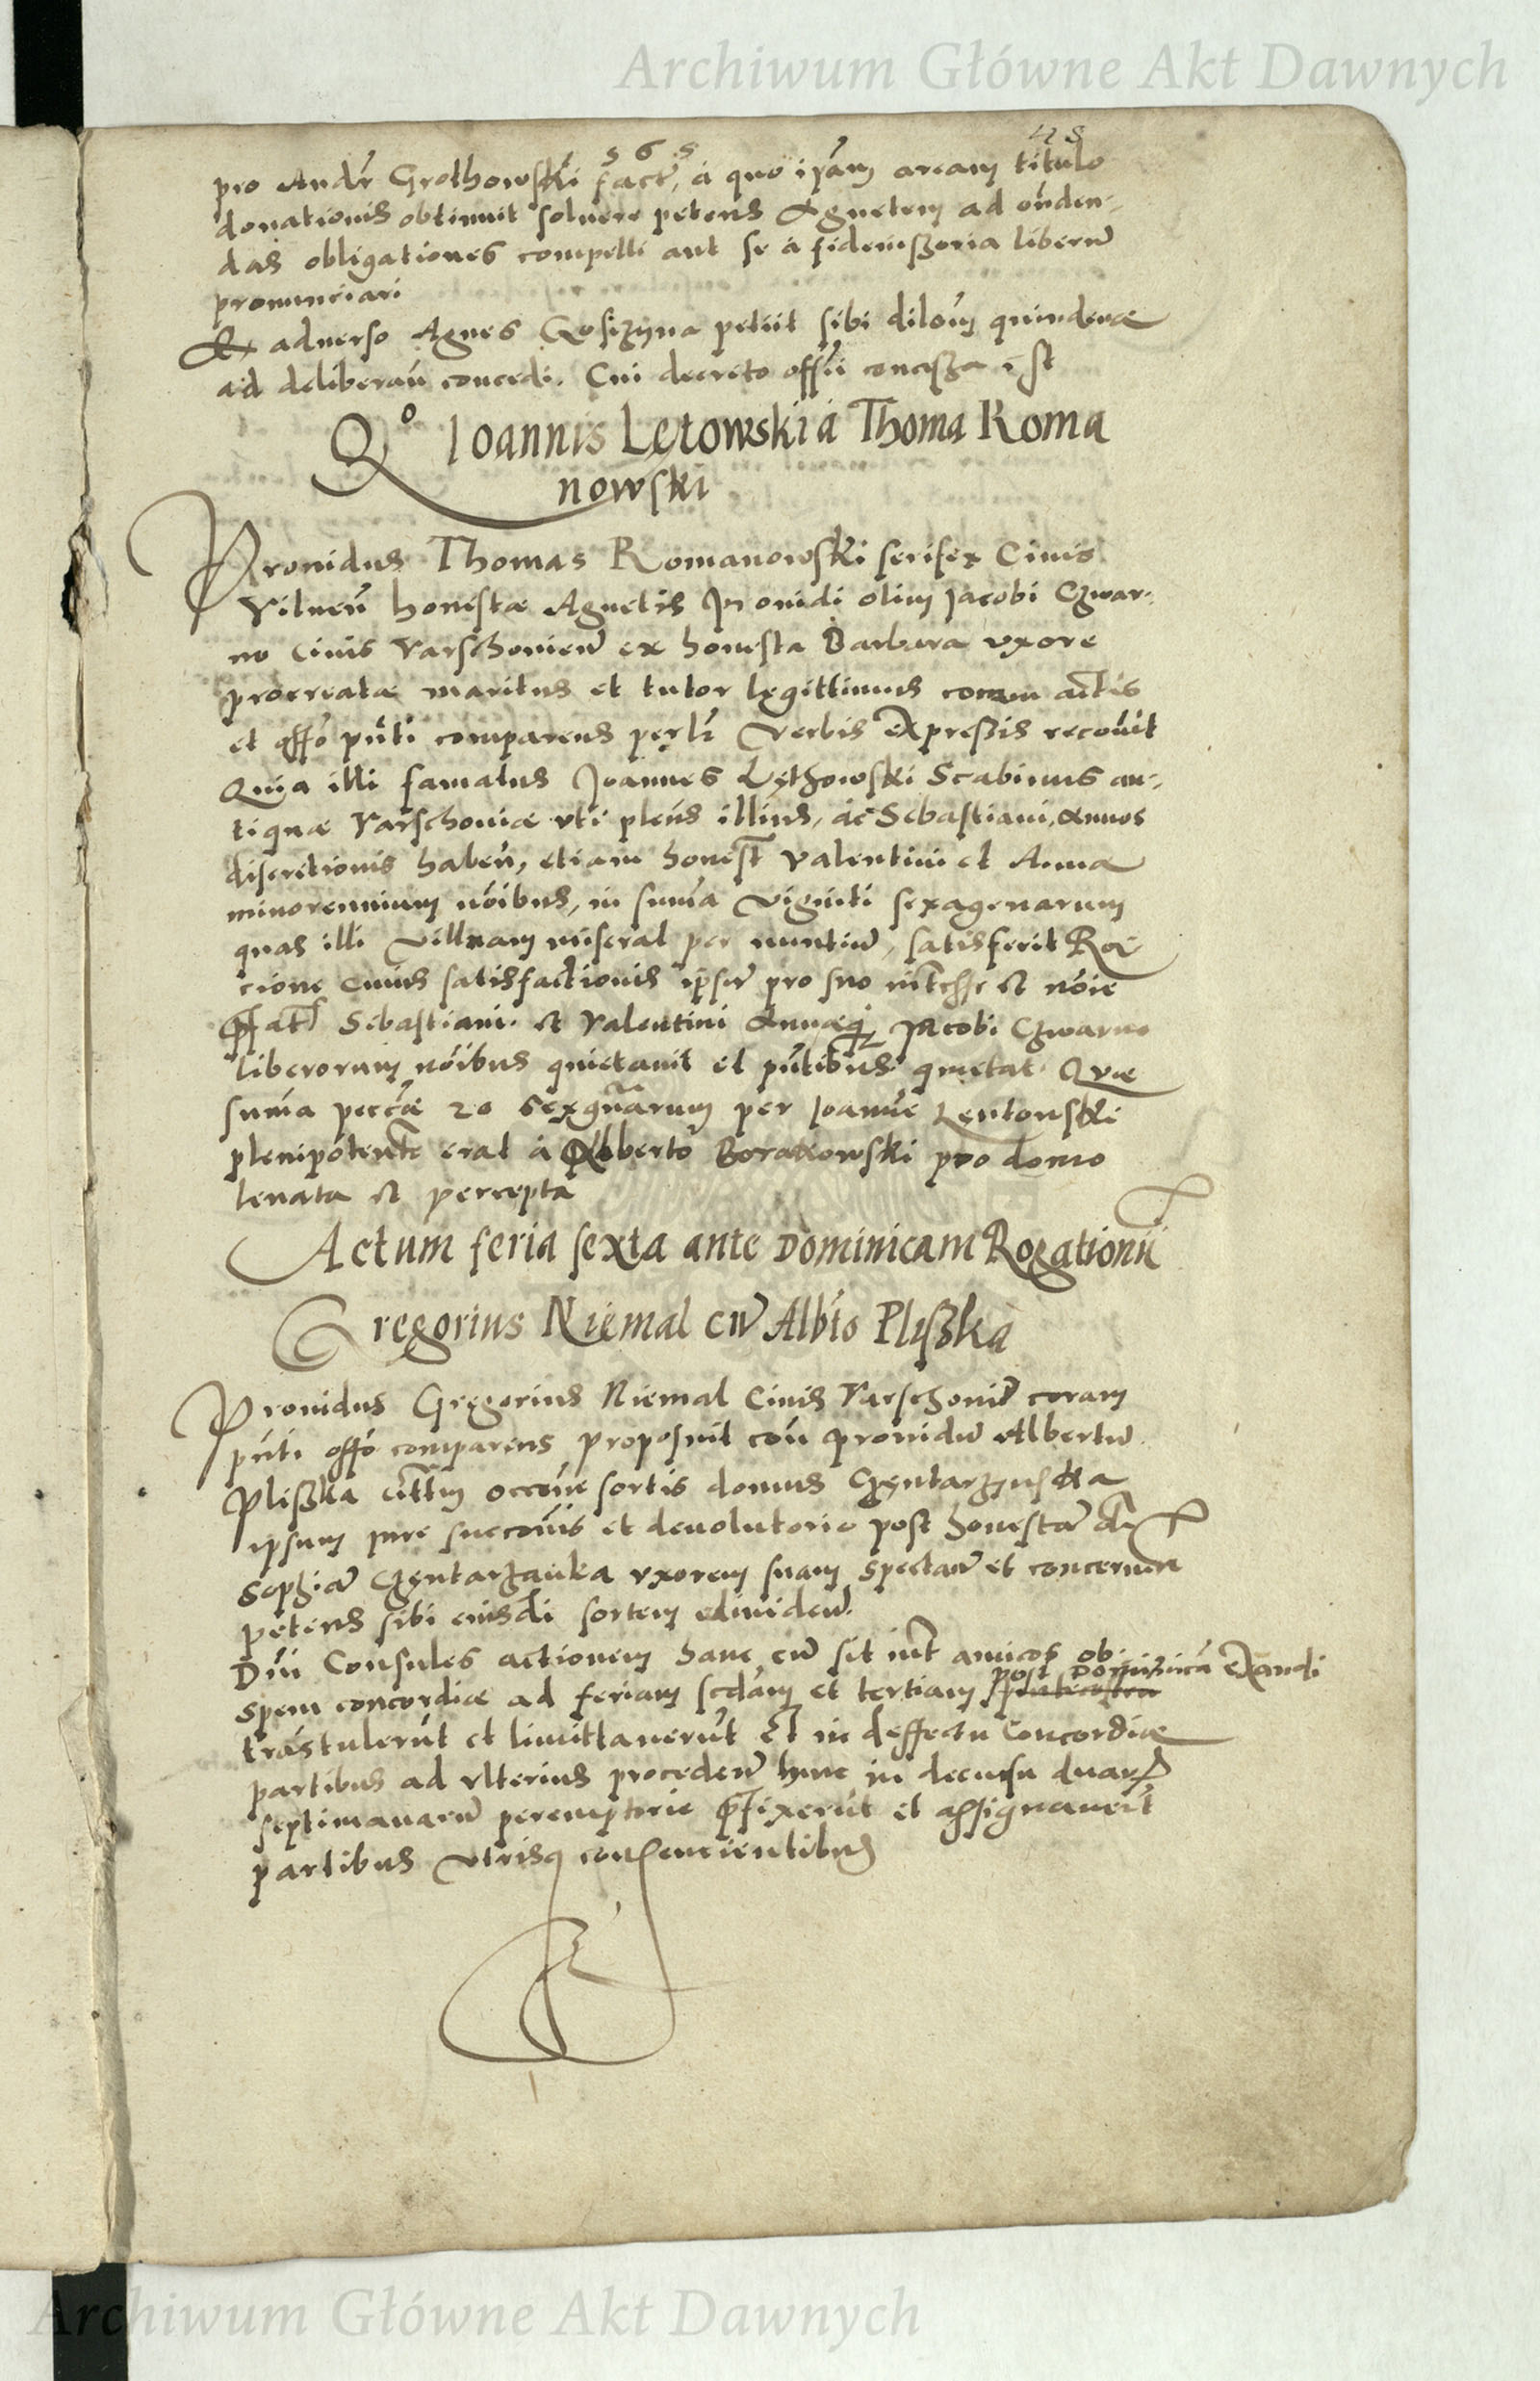 Archiwum Główne Akt Dawnych
48
565
pro Andr̃ Grothowski fact̃, á quo ip̃am aream titulo
donationis obtinuit soluere petens Agnetem ad oñden-
das obligationes compelli aut se á fideiuszoria liberũ
pronunciari
Ex aduerso Agnes petiit sibi dilõm quindenæ
ad deliberañ concedi. Cui decreto offii concessa est
Qº Ioannis Lętowski á Thoma Roma
nowski
Prouidus Thomas Romanowski serifex Ciuis
Vilneñ honestæ Agnetis Prouidi olim Jacobi Czwar-
no Ciuis Varschouieñ ex honesta Barbara vxore
procreatæ maritus et tutor legittimus coram actis
et offo pñti comparens perlr̃ verbis expressis recoũit
Quia illi famatus Joannes Lęthowski Scabinus an-
tiquæ Varschouiæ vti pleñs illius, ac Sebastiani, annos
discretionis habeñ, etiam honest̃ Valentini et Annæ
minorennium nõibus, in sum̃a viginti sexagenarum
quas illi Villnam miserat per nuntiũ, satisfecit Rā
cione Cuius satisfactionis ipsũ pro suo nõie
p̃fat̃ Sebastiani et Valentini Annæq Jacobi Czwarno
liberorum nõibus quietauit et pñtibus quietat Quæ
sum̃a peccũæ 20 sexgñarum per Ioann̄e Lentouski
plenipotent̃e erat á Alberto Boratowski pro domo
leuata et percepta
Actum feria sexta ante Dominicam Rogationũ
Gregorius Niemal cũ Albt̃o Pliszka
Prouidus Gregorius Niemal Ciuis Varschouiẽ coram
pñti offo comparens proposuit coñ prouidũ Albertũ
Pliszka occōne sortis domus
ipsum iure succoñis et deuolutorio post honestã
Sophiã vxorem suam spectañ et concerneñ
petens sibi eiusdi sortem ediuideñ
Dñi Consules actionem hanc cũ sit int̃ amicos ob
spem concordiæ ad feriam scdam et tertiam post Dominicã Exaudi
trãstulerũt et limittauerũt Et in deffectu Concordiæ
partibus ad vlterius procedeñ hinc in decursu duar
septimanarũ peremptorie p̃fixerũt et assignauerũt
partibus vtrisq consencientibus
Archiwum Główne Akt Dawnych